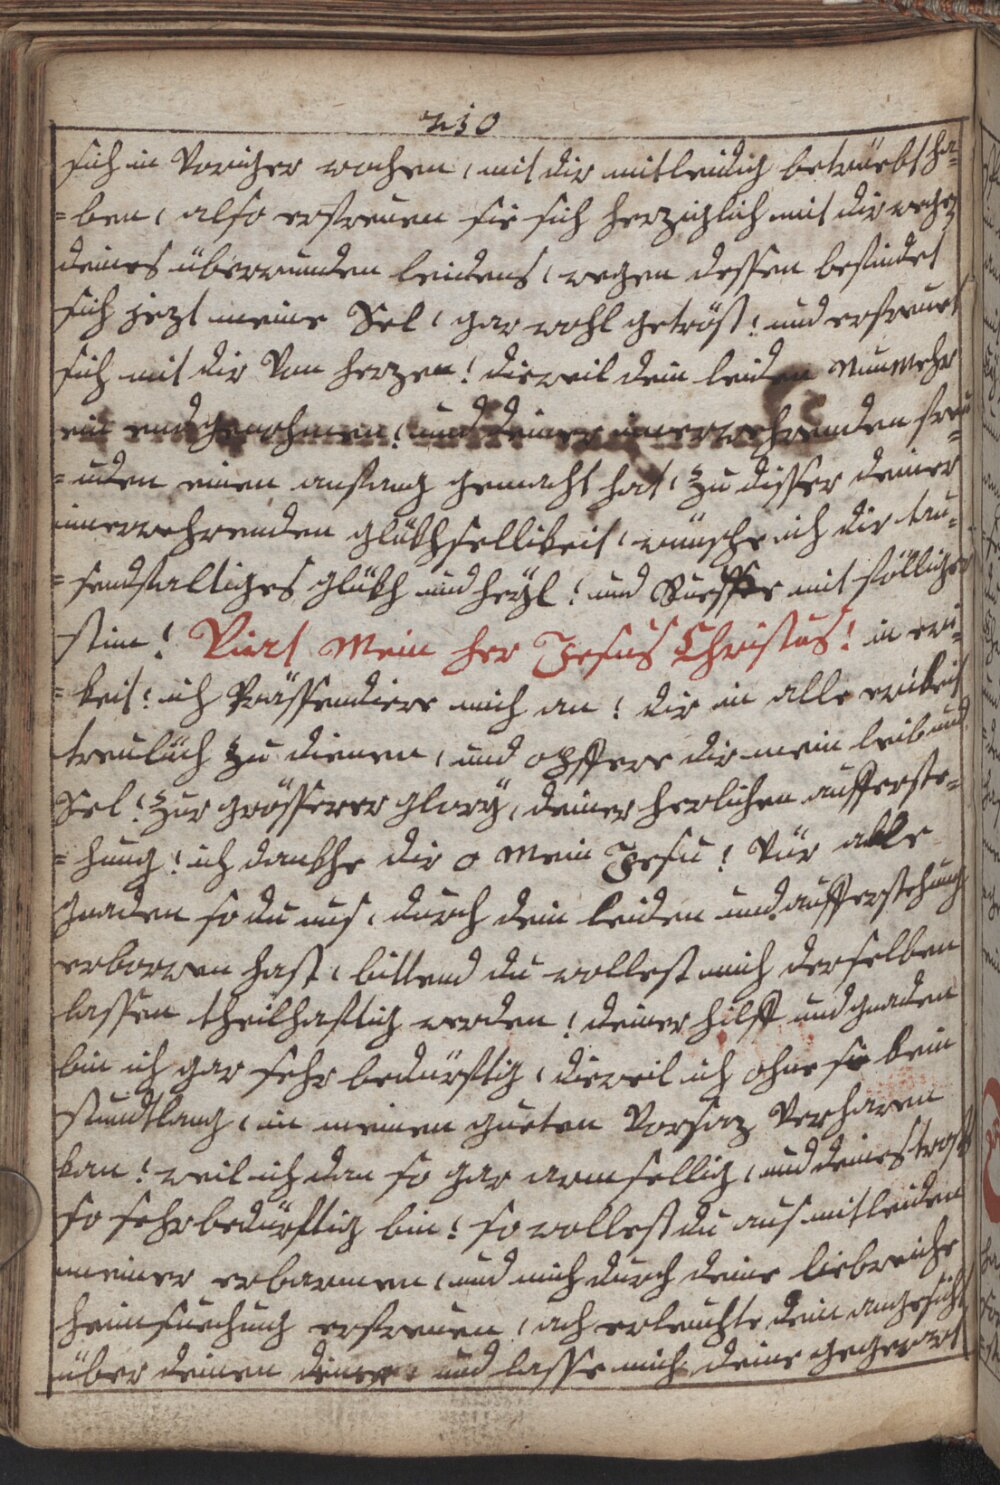 210
sich in voriger wochen, mit dir mitleidig betrüebt ha=
=ben, also erfreuen sie sich herziglich mit dir wegen
deines überwunden leidens, wegen dessen befindet
sich jezt meine Sel, gar wohl getröst! und erfreuet
sich mit dir von herzen! dieweil dein leiden nunmehr
ein endt genohmen! und deiner imerwehrenden fre=
=uden einen anfang gemacht hat, zu disser deiner
imerwehrenden glükhsellikeit, wünsche ich dir tau=
=sendfaltiges glükh und heÿl! und Rueffe mit fölliger
stim! Vivat Mein her Jesus Christus! in ewi=
=keit! ich Präsendiere mich an! dir in alle ewikeit
treulich zu dienen, und opffere dir mein leib und
Sel! zur grösserer glorÿ, deiner herlichen aufferste=
=hung! ich dankhe dir o Mein Jesu! vür alle
gnaden so du uns, durch dein leiden und aufferstehung
erworven hast, bittend du wollest mich derselben
lassen theilhafftig werden! deiner hilff und gnaden
bin ich gar sehr bedürfftig, dieweil ich ohne sie kein
stundtlang, in meinen gueten vorsaz verharen
kan! weil ich dan so gar armsellig, und deines trost
so sehr bedürfftig bin! so wollest du aus mitleiden
meiner erbarmen, und mich durch deine liebreiche
heimsuechung erfreuen! ach erleuchte dein angesicht
über deinen diener und lasse mich deine gegenwart